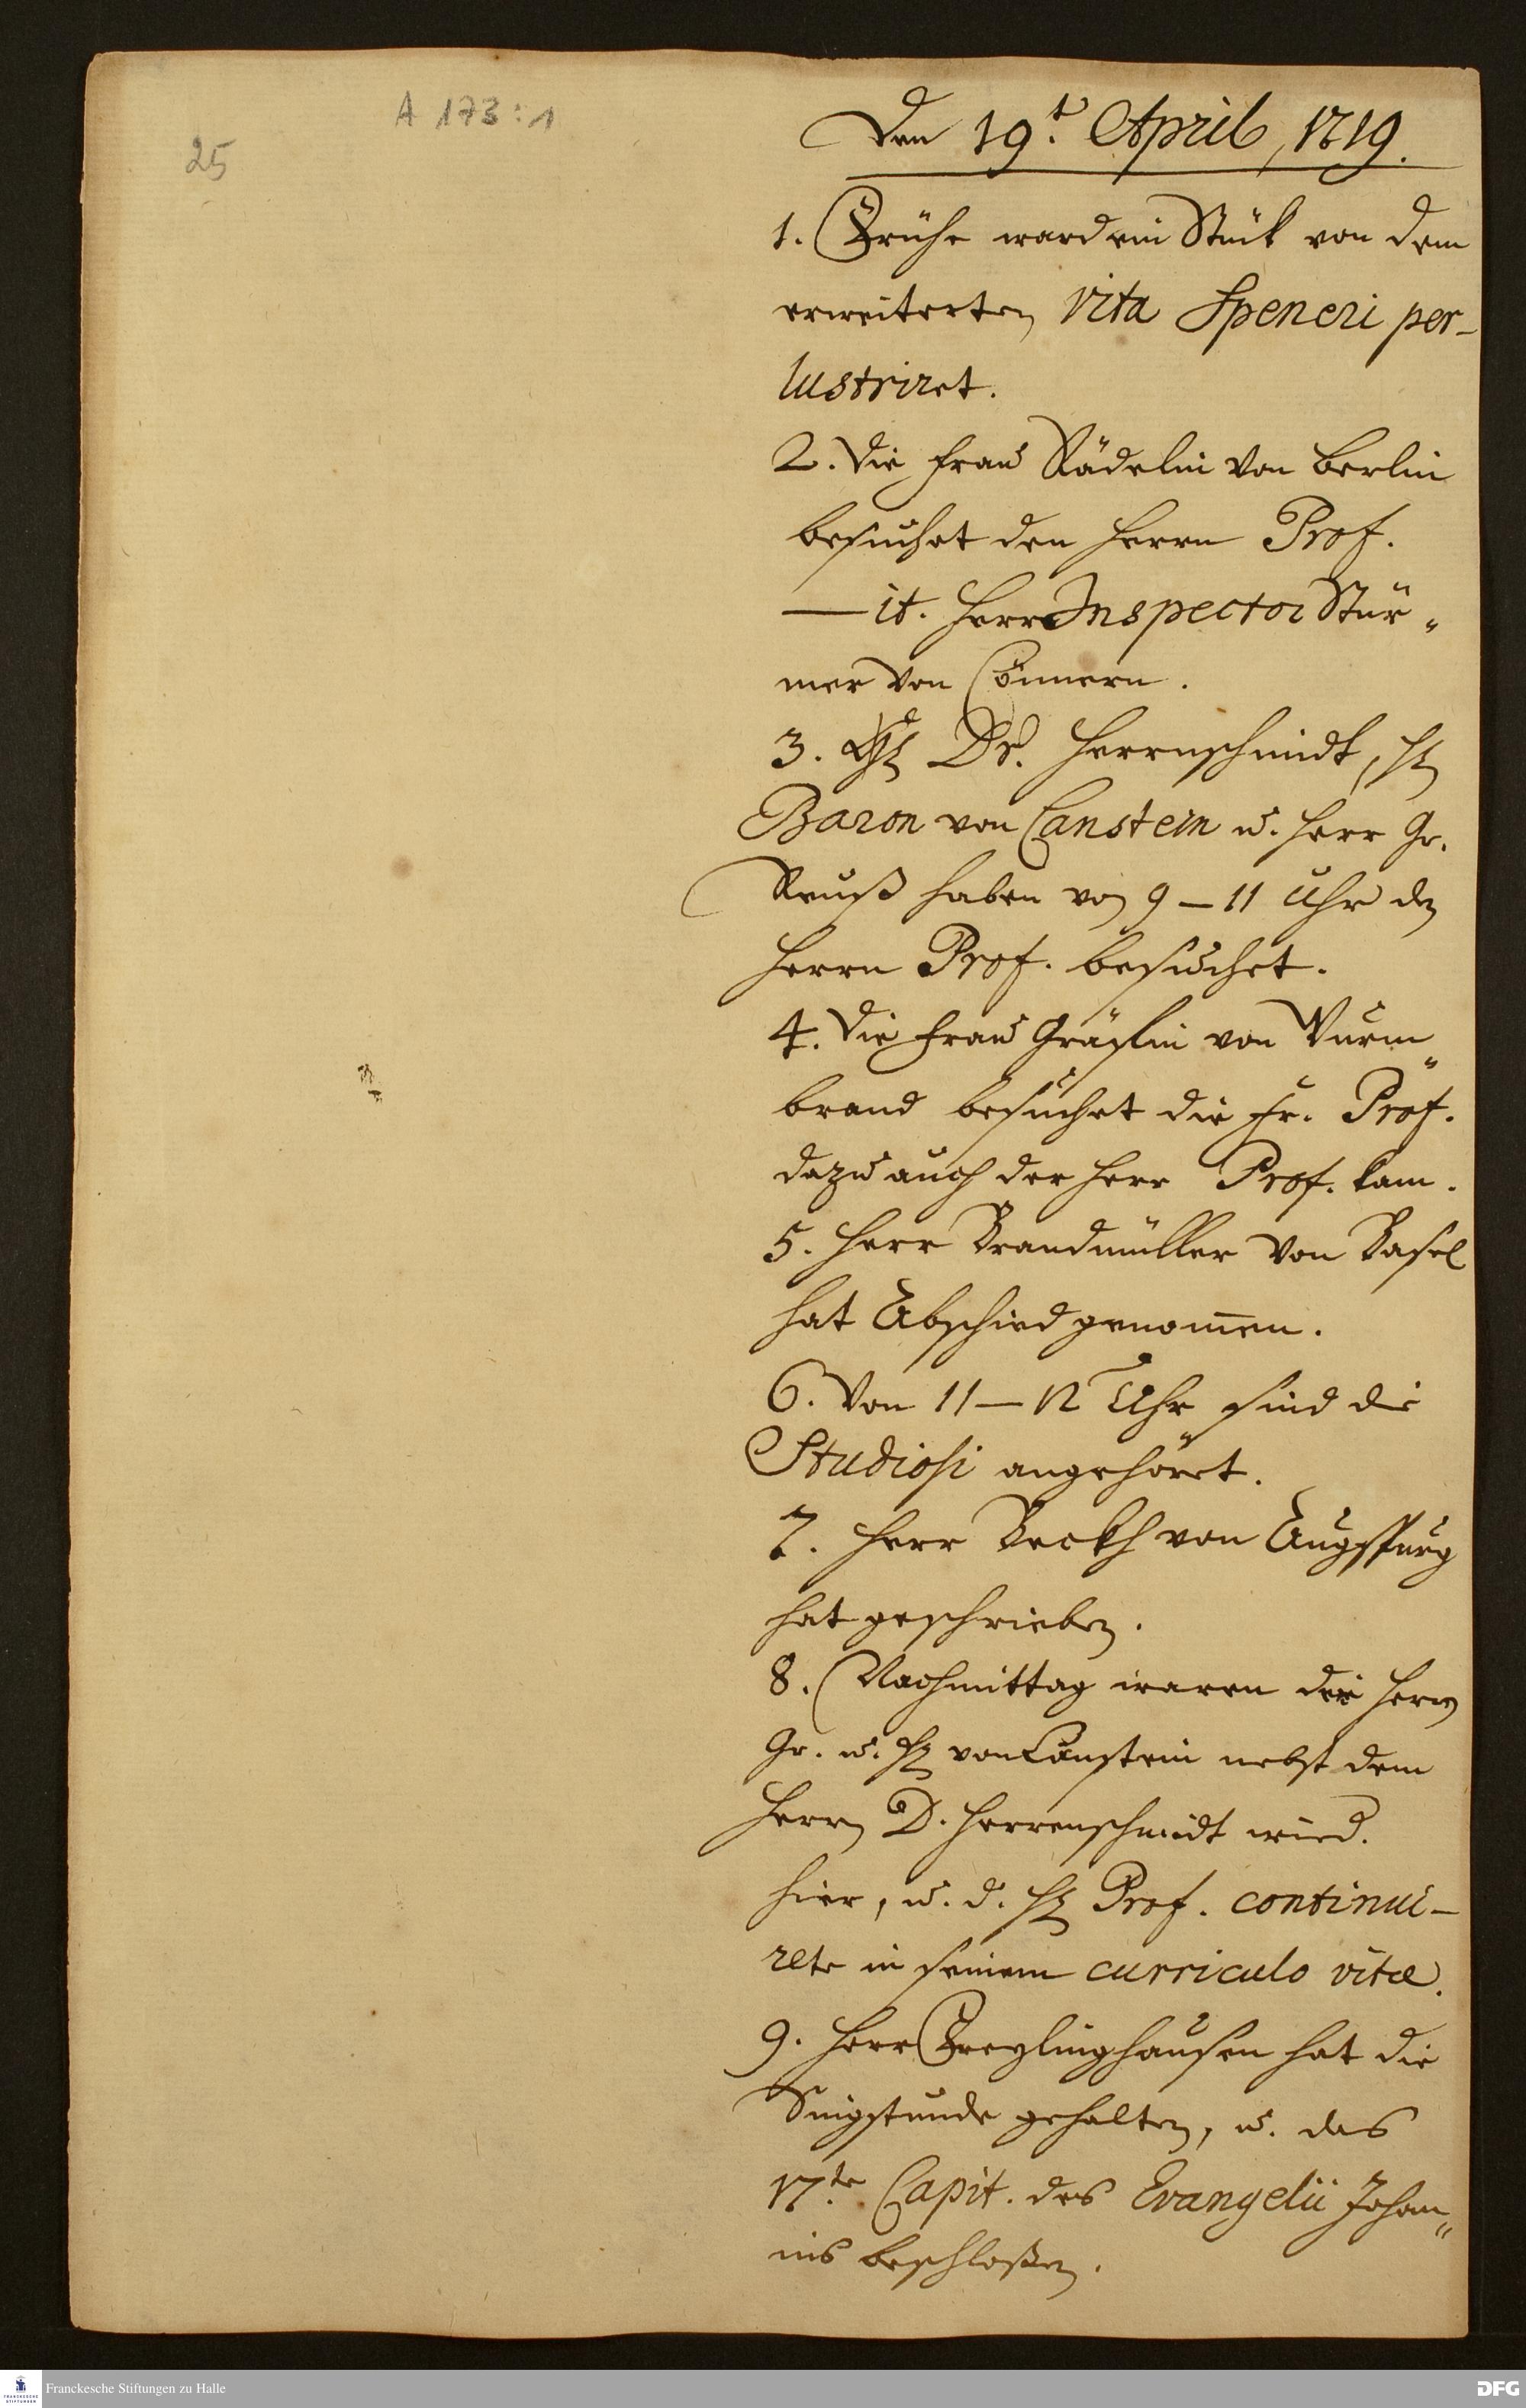 A 173 : 1
25
Den 19.t April, 1719.
1. Frühe ward ein Stück von dem
erweiterten Vita Speneri per-
lustriret.
2. Die Frau Rädelin von Berlin
besuchet den Herrn Prof.
— it. Herr Inspector Stür„
mer von Cönnern.
3. Dr. Herrnschmidt, H.
Baron von Canstein u. Herr Gr.
Reuß haben von 9–11 Uhr den
Herrn Prof. besuchet.
4. Die Frau Gräffin von Wurm„
brand besuchet die Fr. Prof.
dazu auch der Herr Prof. kam.
5. Herr Brandmüller von Basel
hat Abschied genommen.
6. Von 11–12 Uhr sind die
Studiosi angehöret.
7. Herr Beckh von Augspurg
hat geschrieben.
8. Nachmittag waren die Herrn
Gr. u. H. von Canstein nebst dem
Herrn D. Herrenschmidt wied.
hier, u. d. H. Prof. continui-
rete in seinem curriculo vitæ.
9. Herr Freylinghausen hat die
Singstunde gehalten, u. das
17.te Capit. des Evangelii Johan„
nis beschloßen.
Franckesche Stiftungen zu Halle
FRANCKESCHE STIFTUNGEN
DFG